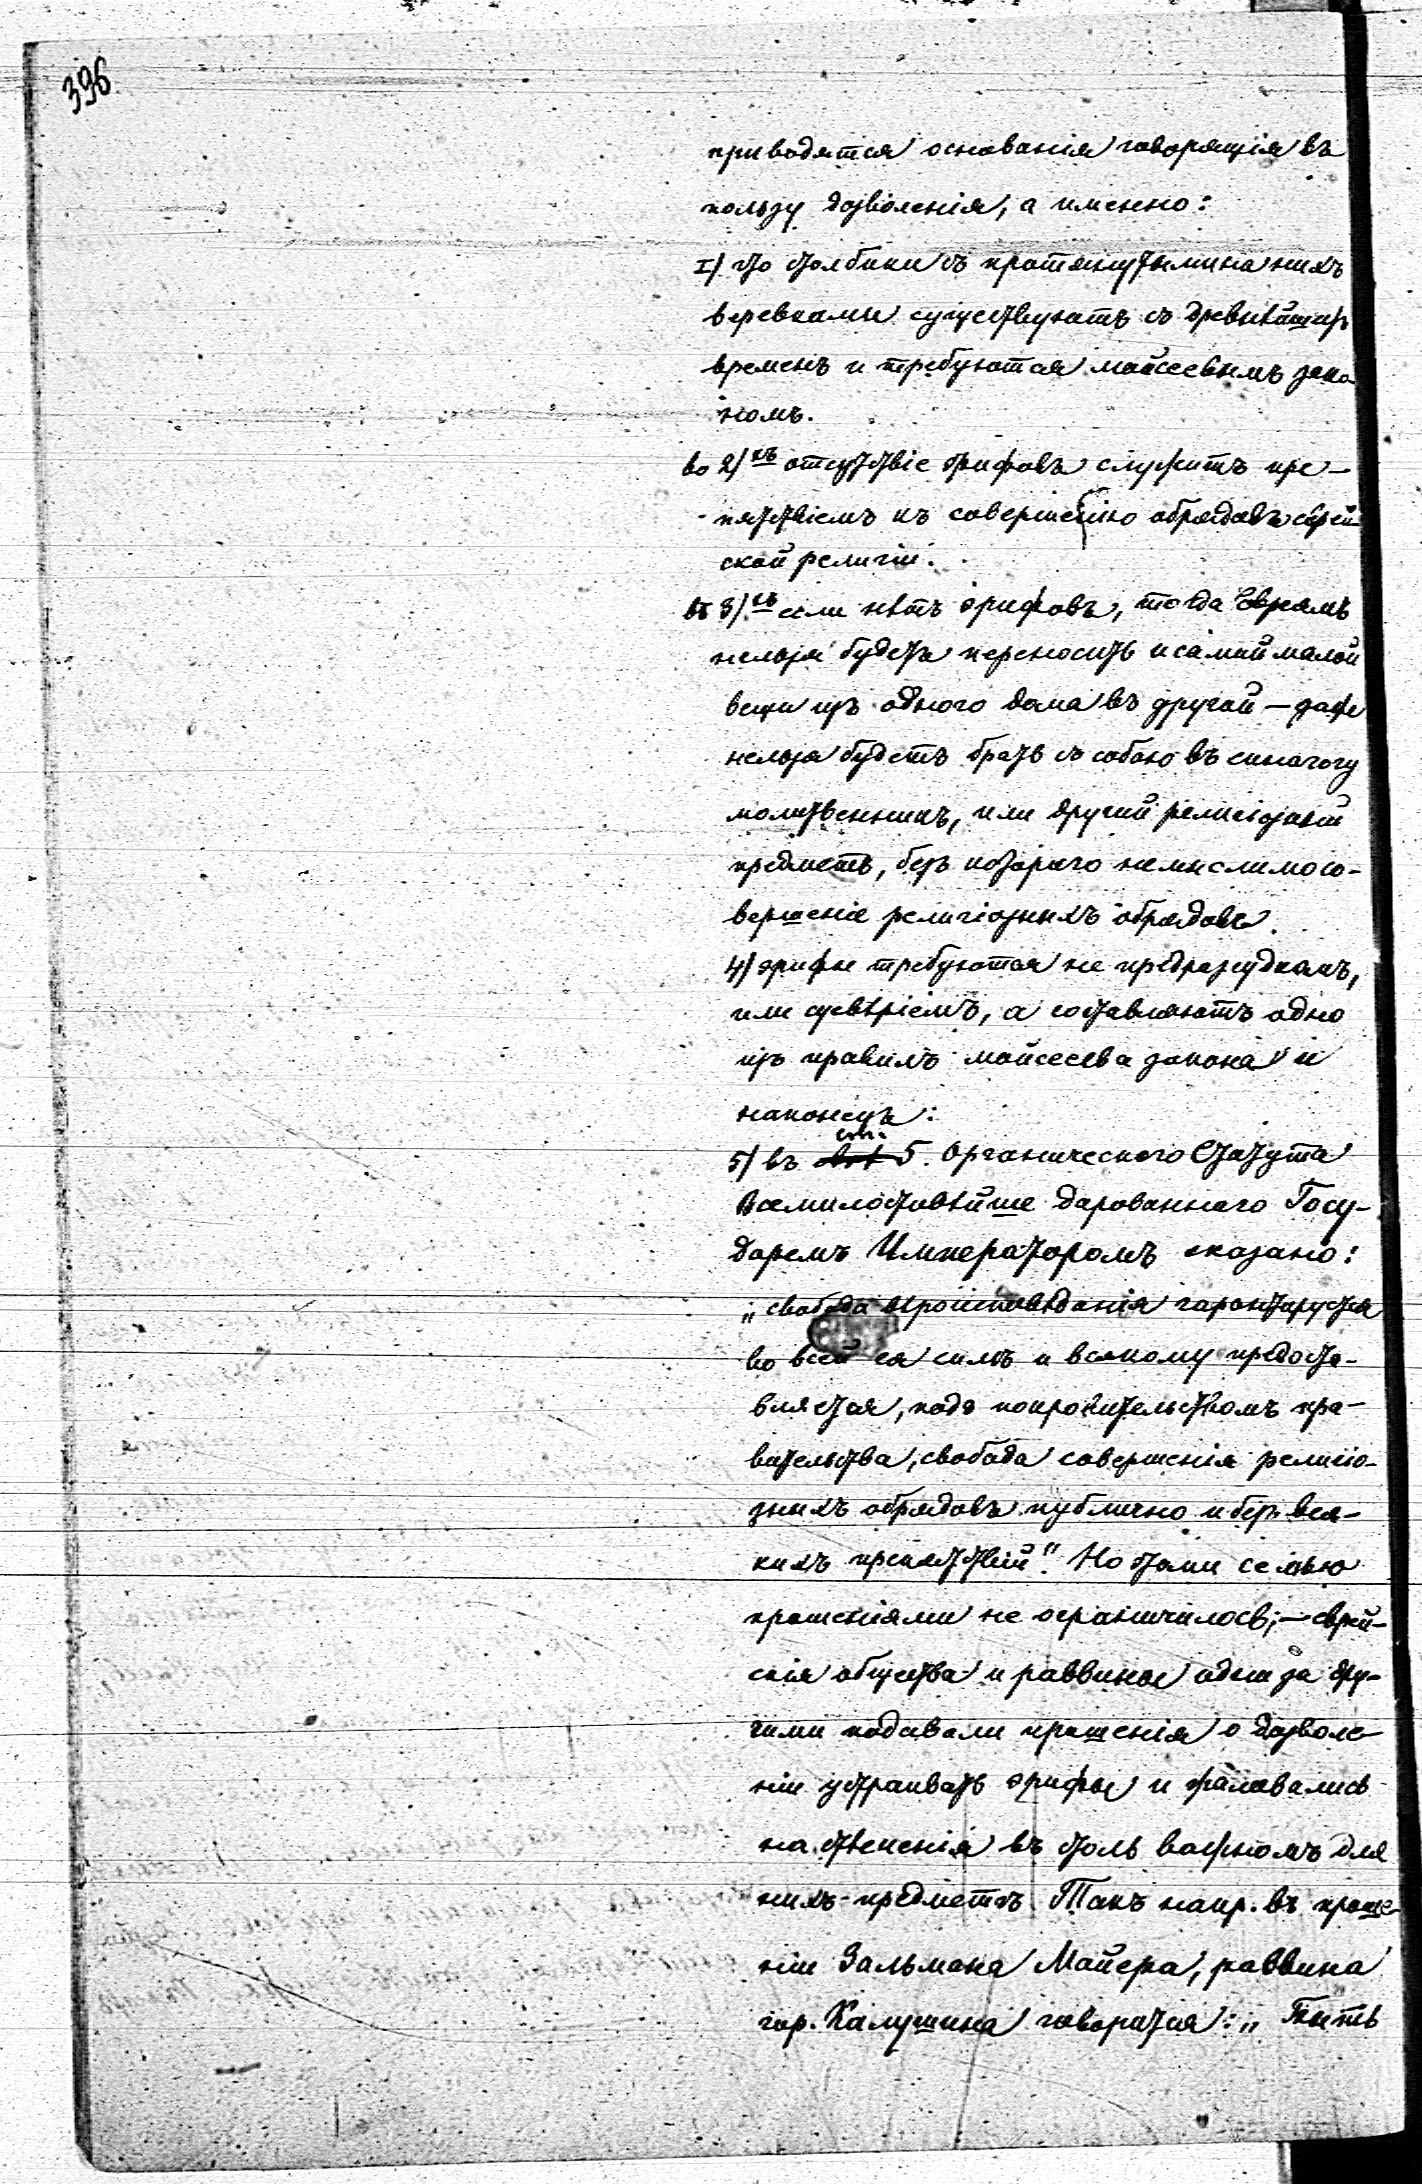 396
приводятся основанія говорящія въ
пользу дозволенія, а именно:
I) что столбики съ протянутыми на нихъ
веревками существуютъ съ древнѣйшихъ
временъ и требуются моисеевымъ зако
номъ.
во 2) хъ отсутствіе эрифовъ служитъ пре-
пятствіемъ къ совершенію обрядовъ еврей
ской религіи.
въ 3) хъ если нѣтъ эрифовъ, тогда Евреямъ
нельзя будетъ переносить и самой малой
вещи изъ одного дома въ другой — даже
нельзя будетъ брать съ собою въ синагогу
молитвенникъ, или другой религіозный
предметъ, безъ котораго немыслимо со-
вершеніе религіозныхъ обрядовъ.
4) эрифы требуются не предразсудкомъ,
или суевѣріемъ, а составляютъ одно
изъ правилъ моисеева закона и
наконецъ:
5) въ ст. 5. Органическаго Статута
Всемилостивѣйше дарованнаго Госу-
даремъ Императоромъ сказано:
„свобода вѣроисповѣданія гарантируется
во всей ея силѣ и всякому предоста-
вляется, подъ покровительствомъ пра-
вительства, свобода совершенія религіо-
зныхъ обрядовъ публично и безъ вся-
кихъ препятствій". Но этими семью
прошеніями не ограничилось; — еврей-
скія общества и раввины одни за дру-
гими подавали прошенія о дозволе-
ніи устраивать эрифы и жаловались
на стѣсненія въ столь важномъ для
нихъ предметѣ. Такъ напр. въ проше-
ніи Зальмана Майера, раввина
гор. Калушина говорится: „